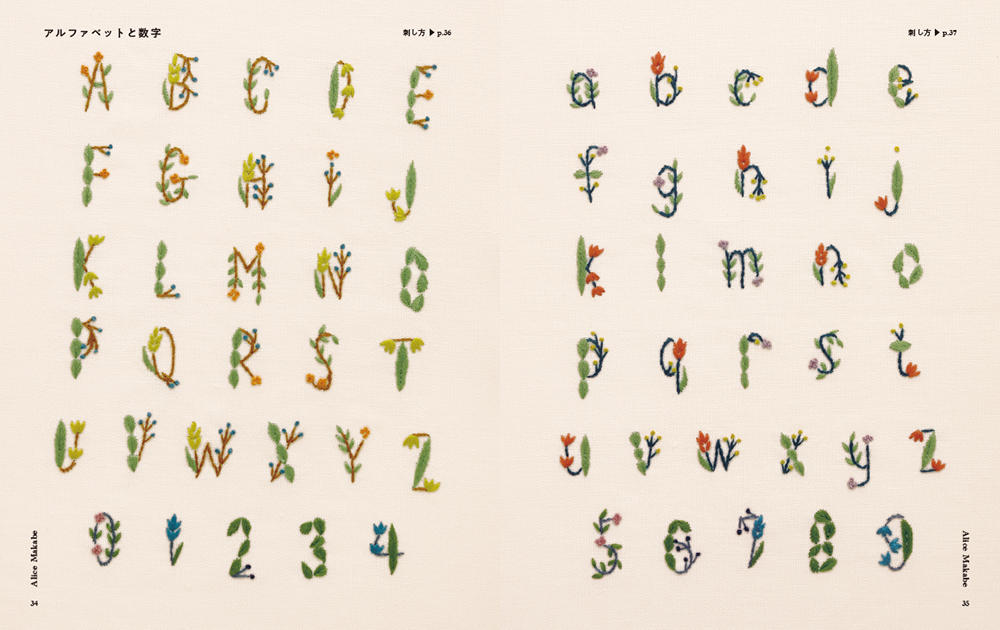 アルファベットと数字
刺し方▶p.36
A B C D E
F G H I J
K L M N O
P Q R S T
U V W X Y Z
0 1 2 3 4
Alice Makabe
34
刺し方▶p.37
a b c d e
f g h i j
k l m n o
p q r s t
u v w x y z
5 6 7 8 9
Alice Makabe
35